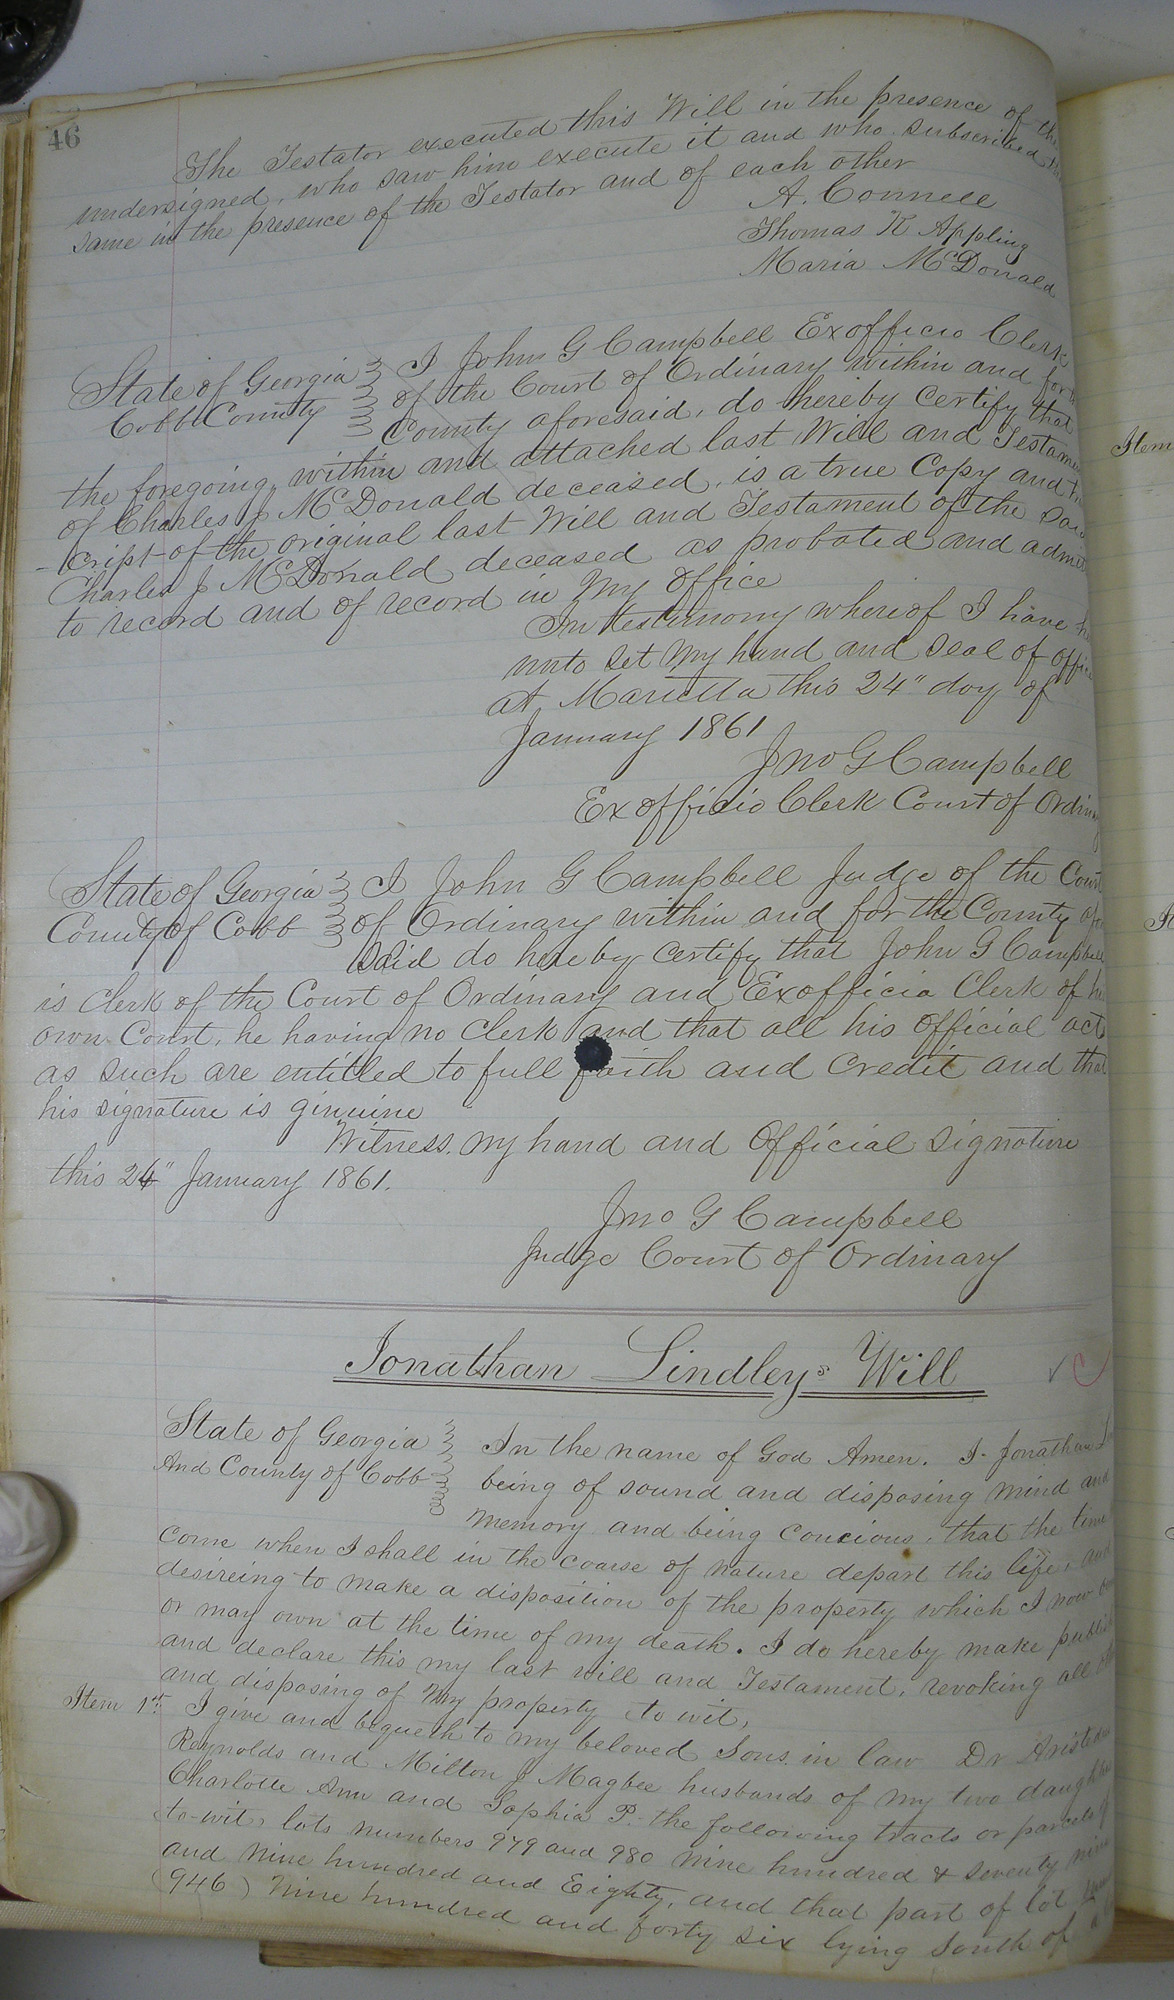 46
The Testator executed this Will in the presence of the
undersigned, who saw him execute it and who subscribed the
same in the presence of the Testator and of each other
A. Connell
Thomas R Appling
Maria McDonald
State of Georgia I John G Campbell Exofficio Clerk
Cobb County of the Court of Ordinary within and for the
County aforesaid, do hereby certify that
the foregoing, within and attached last Will and Testam
of Charles J McDonald deceased, is a true Copy and
-cript of the original last Will and Testament of the said
Charles J McDonald deceased as probated and admit
to record and of record in my office
In testimony whereof I have he
unto set my hand and seal of office
at Marietta this 24" day of
January 1861
Jno G Campbell
Exofficio Clerk Court of Ordinary
State of Georgia I John G Campbell Judge of the Court
County of Cobb of Ordinary within and for the County afore
said do hereby certify that John G Campbell
is Clerk of the Court of Ordinary and Exofficio Clerk of his
own Court, he having no Clerk and that all his official acts
as such are entitled to full faith and credit and that
his signature is ginuine
Witness my hand and Official Signature
this 24" January 1861.
Jno G Campbell
Judge Court of Ordinary
Jonathan Lindleys Will
State of Georgia In the name of God Amen. I Jonathan Lin
And County of Cobb being of sound and disposing mind and
memory and being concious, that the time
come when I shall in the coarse of nature depart this life, and
desireing to make a disposition of the property which I now own
or may own at the time of my death. I do hereby make publish
and declare this my last will and Testament, revoking all
and disposing of my property to wit,
Item 1st I give and bequeth to my beloved Sons in law Dr Aristedes
Raynolds and Milton J Magbee husbands of my two daughters
Charlotte Ann and Sophia P. the following tracts or parcels of
to-wit, lots numbers 979 and 980 Nine hundred & seventy nine
and Nine hundred and Eighty, and that part of lot
(946) Nine hundred and forty six lying South of a
Item